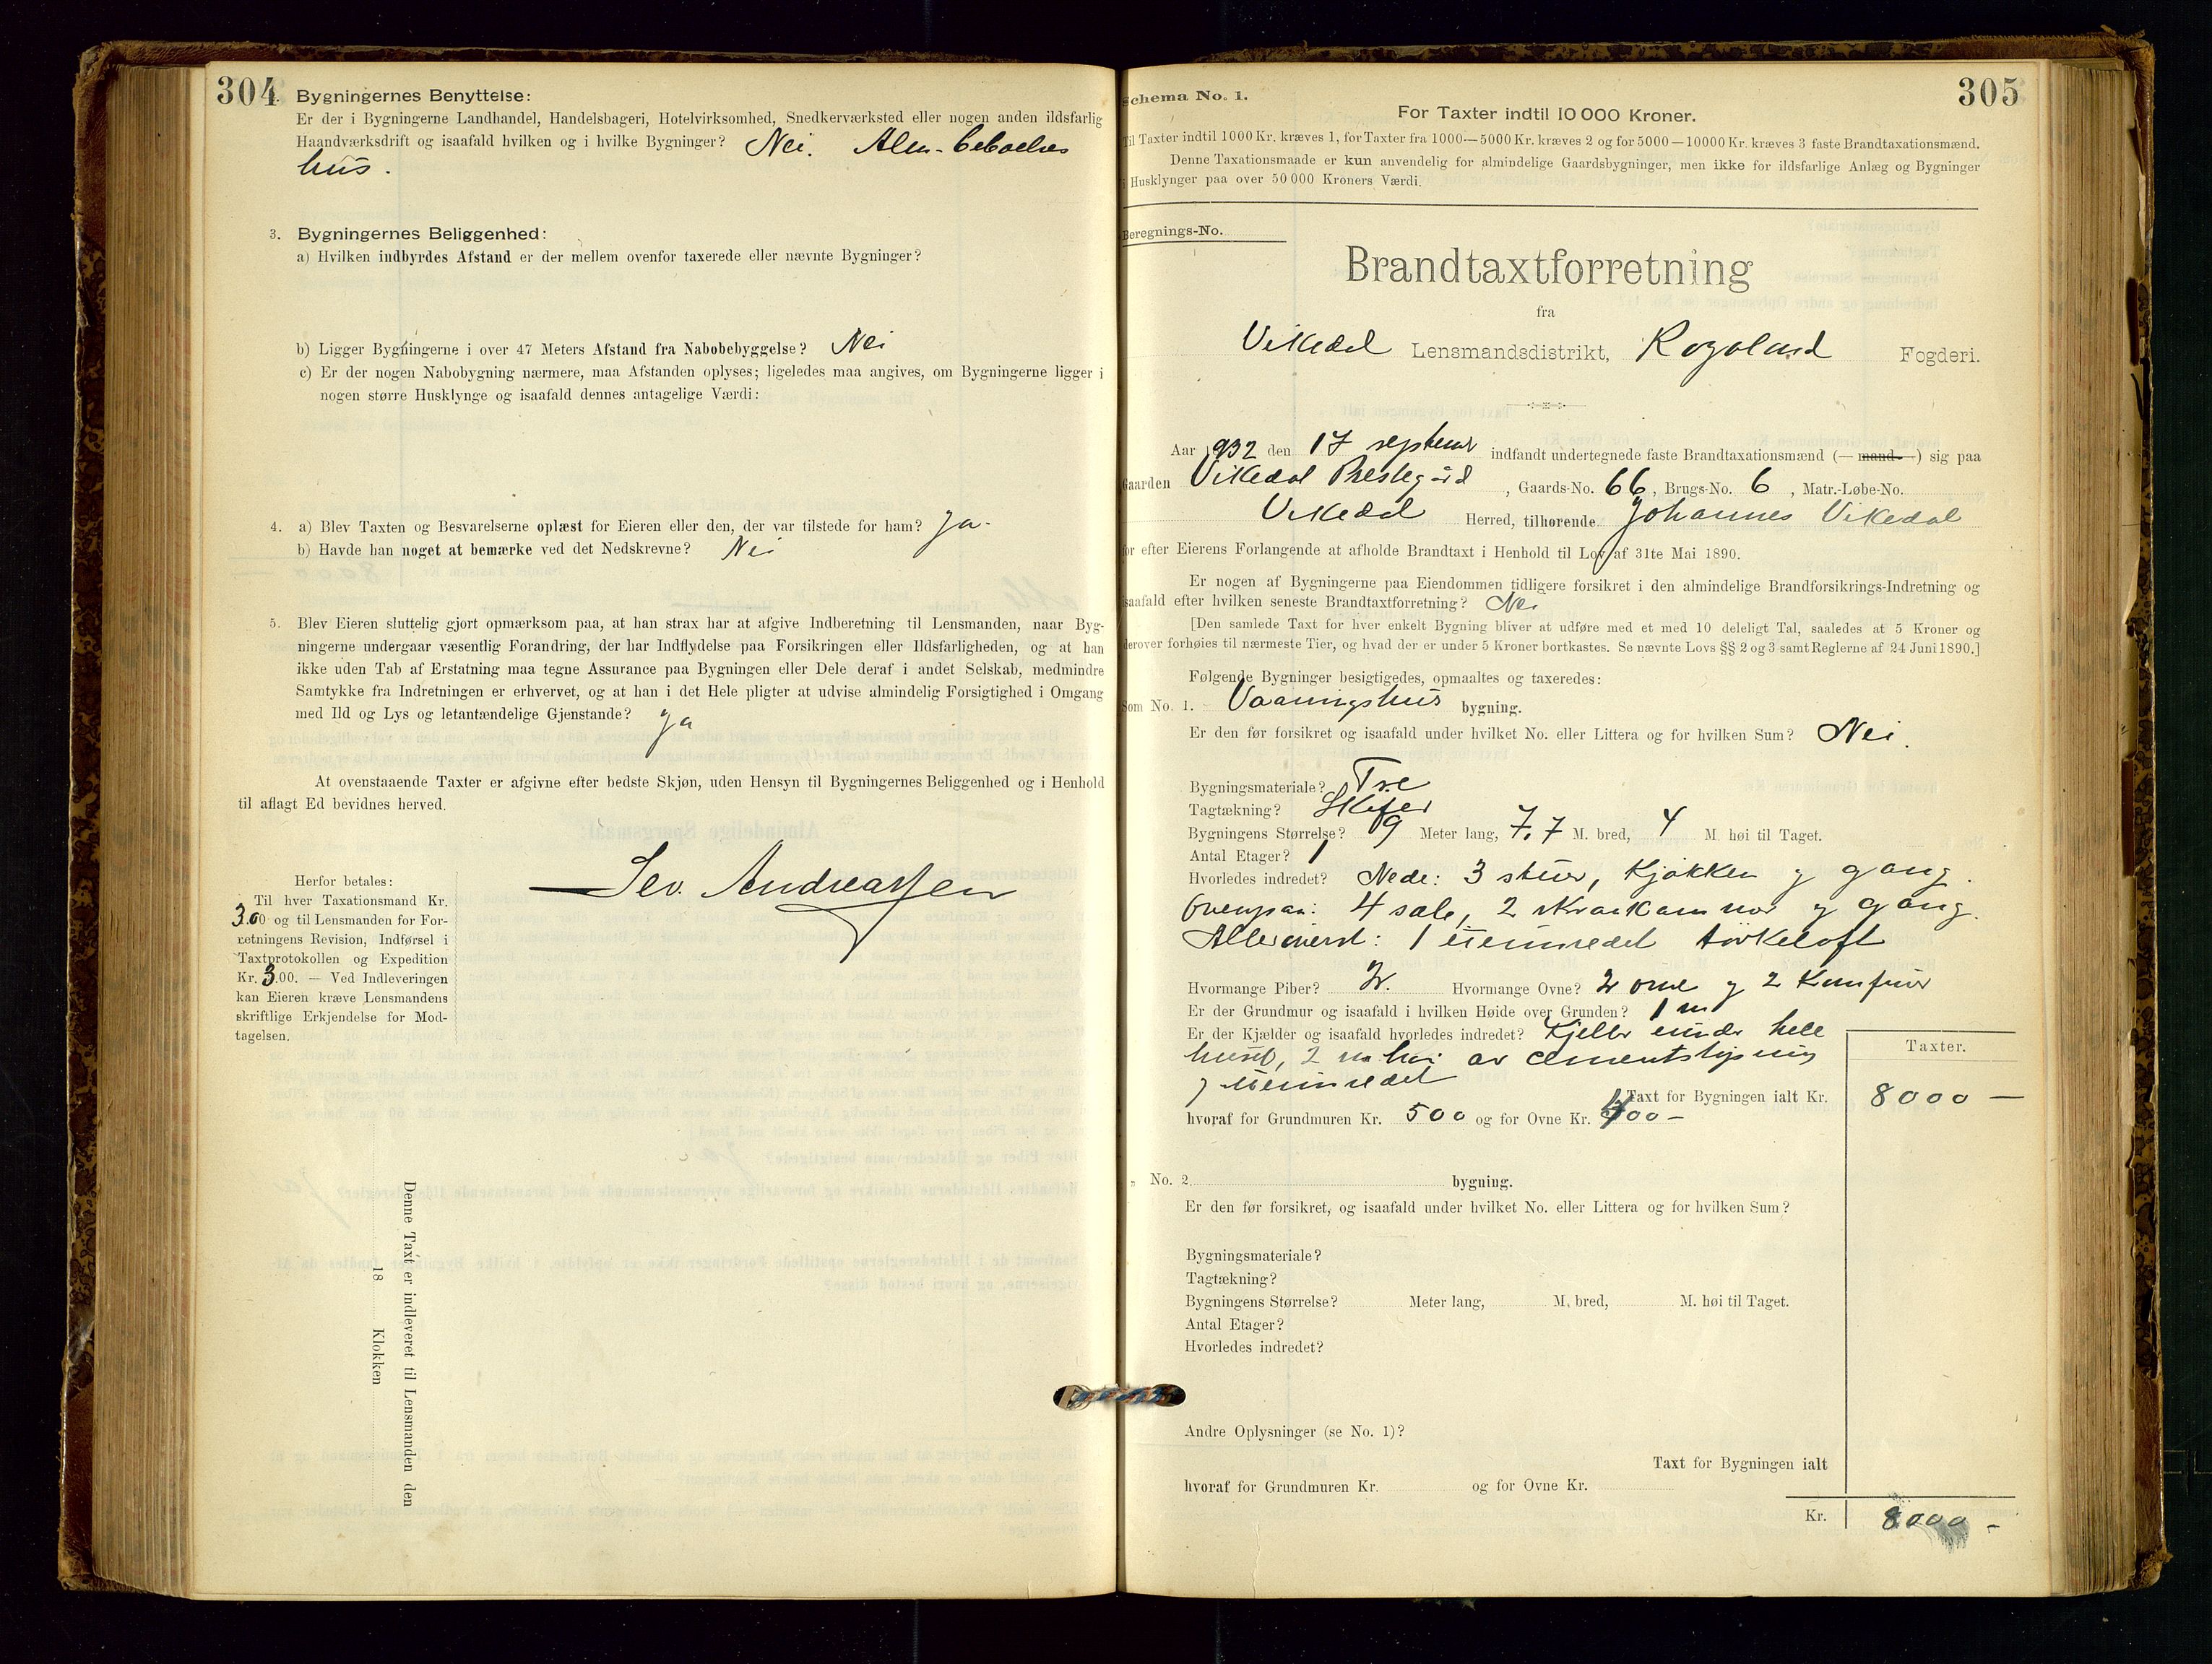 304
Bygningernes Benyttelse:
Er der i Bygningerne Landhandel, Handelsbageri, Hotelvirksomhed, Snedkerværksted eller nogen anden ildsfarlig
Haandværksdrift og isaafald hvilken og i hvilke Bygninger? Nei. Alm. beboelses
hus.
3. Bygningernes Beliggenhed:
a) Hvilken indbyrdes Afstand er der mellem ovenfor taxerede eller nævnte Bygninger?
b) Ligger Bygningerne i over 47 Meters Afstand fra Nabobebyggelse? Nei
c) Er der nogen Nabobygning nærmere, maa Afstanden oplyses; ligeledes maa angives, om Bygningerne ligger i
nogen større Husklynge og isaafald dennes antagelige Værdi:
4. a) Blev Taxten og Besvarelserne oplæst for Eieren eller den, der var tilstede for ham? Ja.
b) Havde han noget at bemærke ved det Nedskrevne? Nei
5. Blev Eieren sluttelig gjort opmærksom paa, at han strax har at afgive Indberetning til Lensmanden, naar Byg-
ningerne undergaar væsentlig Forandring, der har Indflydelse paa Forsikringen eller Ildsfarligheden, og at han
ikke uden Tab af Erstatning maa tegne Assurance paa Bygningen eller Dele deraf i andet Selskab, medmindre
Samtykke fra Indretningen er erhvervet, og at han i det Hele pligter at udvise almindelig Forsigtighed i Omgang
med Ild og Lys og letantændelige Gjenstande? Ja
At ovenstaaende Taxter er afgivne efter bedste Skjøn, uden Hensyn til Bygningernes Beliggenhed og i Henhold
til aflagt Ed bevidnes herved.
Sev. Andreassen
Herfor betales:
Til hver Taxationsmand Kr.
3.00 og til Lensmanden for For-
retningens Revision, Indførsel i
Taxtprotokollen og Expedition
Kr. 3.00. — Ved Indleveringen
kan Eieren kræve Lensmandens
skriftlige Erkjendelse for Mod-
tagelsen.
Denne Taxt er indleveret til Lensmanden den
18 Klokken
305
Schema No. 1.
For Taxter indtil 10 000 Kroner.
Til Taxter indtil 1000 Kr. kræves 1, for Taxter fra 1000—5000 Kr. kræves 2 og for 5000—10000 Kr. kræves 3 faste Brandtaxationsmænd.
Denne Taxationsmaade er kun anvendelig for almindelige Gaardsbygninger, men ikke for ildsfarlige Anlæg og Bygninger
i Husklynger paa over 50 000 Kroners Værdi.
Beregnings-No.
Brandtaxtforretning
fra
Vikedal Lensmandsdistrikt, Rogaland Fogderi.
Aar 1932 den 17 septemr indfandt undertegnede faste Brandtaxationsmænd (— mand —) sig paa
Gaarden Vikedal Prestegård, Gaards-No. 66, Brugs-No. 6, Matr.-Løbe-No.
Vikedal Herred, tilhørende Johannes Vikedal
for efter Eierens Forlangende at afholde Brandtaxt i Henhold til Lov af 31te Mai 1890.
Er nogen af Bygningerne paa Eiendommen tidligere forsikret i den almindelige Brandforsikrings-Indretning og
isaafald efter hvilken seneste Brandtaxtforretning? Nei
[Den samlede Taxt for hver enkelt Bygning bliver at udføre med et med 10 deleligt Tal, saaledes at 5 Kroner og
derover forhøies til nærmeste Tier, og hvad der er under 5 Kroner bortkastes. Se nævnte Lovs §§ 2 og 3 samt Reglerne af 24 Juni 1890.]
Følgende Bygninger besigtigedes, opmaaltes og taxeredes:
Som No. 1. Vaaningshus bygning.
Er den før forsikret og isaafald under hvilket No. eller Littera og for hvilken Sum? Nei.
Bygningsmateriale? Tre
Tagtækning? Skifer
Bygningens Størrelse? 9 Meter lang, 7,7 M. bred, 4 M. høi til Taget.
Antal Etager? 1
Hvorledes indredet? Nede: 3 stuer, kjøkken og gang.
Ovenpaa: 4 sale, 2 skraakammer og gang.
Alleroverst: 1 uinnredet tørkeloft
Hvormange Piber? 2. Hvormange Ovne? 2 ovne og 2 komfurer
Er der Grundmur og isaafald i hvilken Høide over Grunden? 1 m
Er der Kjælder og isaafald hvorledes indredet? Kjeller under hele
huset, 2 m høi av cementstøpning
og uinnredet
Taxter.
Taxt for Bygningen ialt Kr. 8000 —
hvoraf for Grundmuren Kr. 500 og for Ovne Kr. 400 —
„ No. 2 bygning.
Er den før forsikret, og isaafald under hvilket No. eller Littera og for hvilken Sum?
Bygningsmateriale?
Tagtækning?
Bygningens Størrelse? Meter lang, M. bred, M. høi til Taget.
Antal Etager?
Hvorledes indredet?
Andre Oplysninger (se No. 1)?
Taxt for Bygningen ialt
hvoraf for Grundmuren Kr. og for Ovne Kr.
Kr. 8000 –